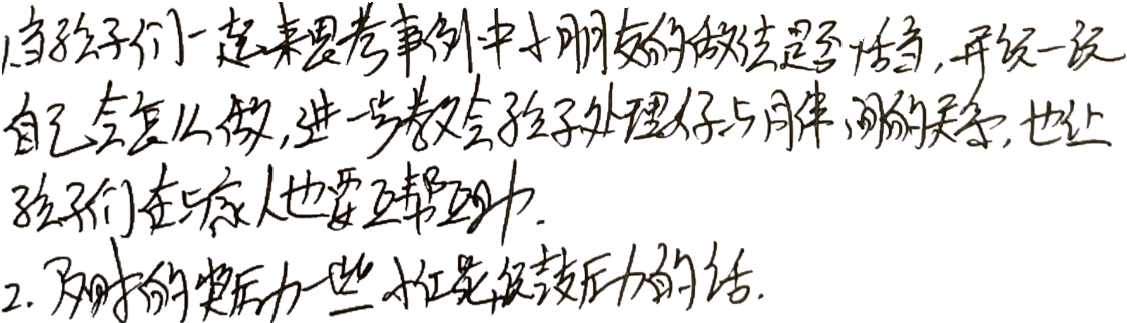 让孩子们一起来思考事例中小朋友的做法是否恰当,并说一说
自己会怎么做,进一步教会孩子处理好与同伴间的关系,也让
孩子们在与家人也要互帮互助.
2. 及时的奖励一些小红花,说鼓励的话.